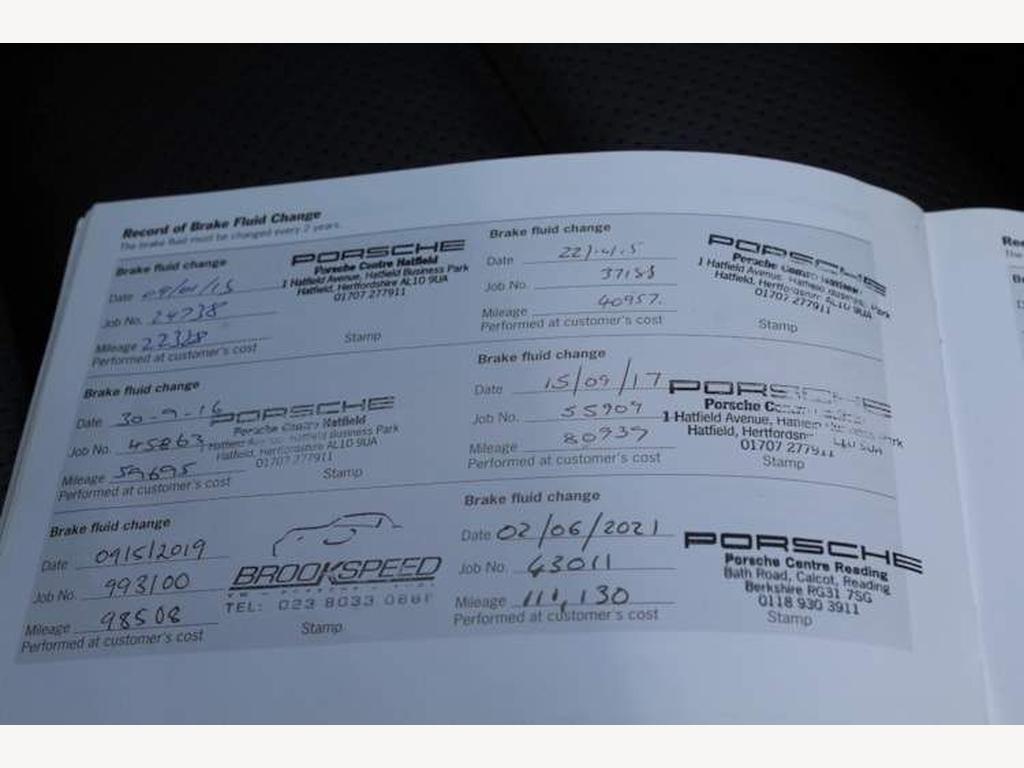 Record of Brake Fluid Change
The brake fluid must be changed every 2 years.
Brake fluid change
Date 09/01/15
Job No. 24738
Mileage 22328
Performed at customer's cost
PORSCHE
Porsche Centre Hatfield
1 Hatfield Avenue, Hatfield Business Park
Hatfield, Hertfordshire AL10 9UA
01707 277911
Stamp
Brake fluid change
Date
Job No.
Mileage 40957.
Performed at customer's cost
PORSCHE
Porsche Centre Hatfield
1 Hatfield Avenue, Hatfield Business Park
Hatfield, Hertfordshire AL10 9UA
01707 277911
Stamp
Brake fluid change
Date 30-9-16
Job No. 45863
Mileage 59695
Performed at customer's cost
PORSCHE
Porsche Centre Hatfield
Hatfield Avenue, Hatfield Business Park
Hatfield, Hertfordshire AL10 9UA
01707 277911
Stamp
Brake fluid change
Date 15/09/17
Job No. 55909
Mileage 80939
Performed at customer's cost
PORSCHE
Porsche
1 Hatfield Avenue, Park
Hatfield,
01707 277911
Stamp
Brake fluid change
Date 09/5/2019
Job No. 993100
Mileage 98508
Performed at customer's cost
BROOKSPEED
TEL: 023 8033
Stamp
Brake fluid change
Date 02/06/2021
Job No. 43011
Mileage 111,130
Performed at customer's cost
PORSCHE
Porsche Centre Reading
Bath Road, Calcot, Reading
Berkshire RG31 7SG
0118 930 3911
Stamp